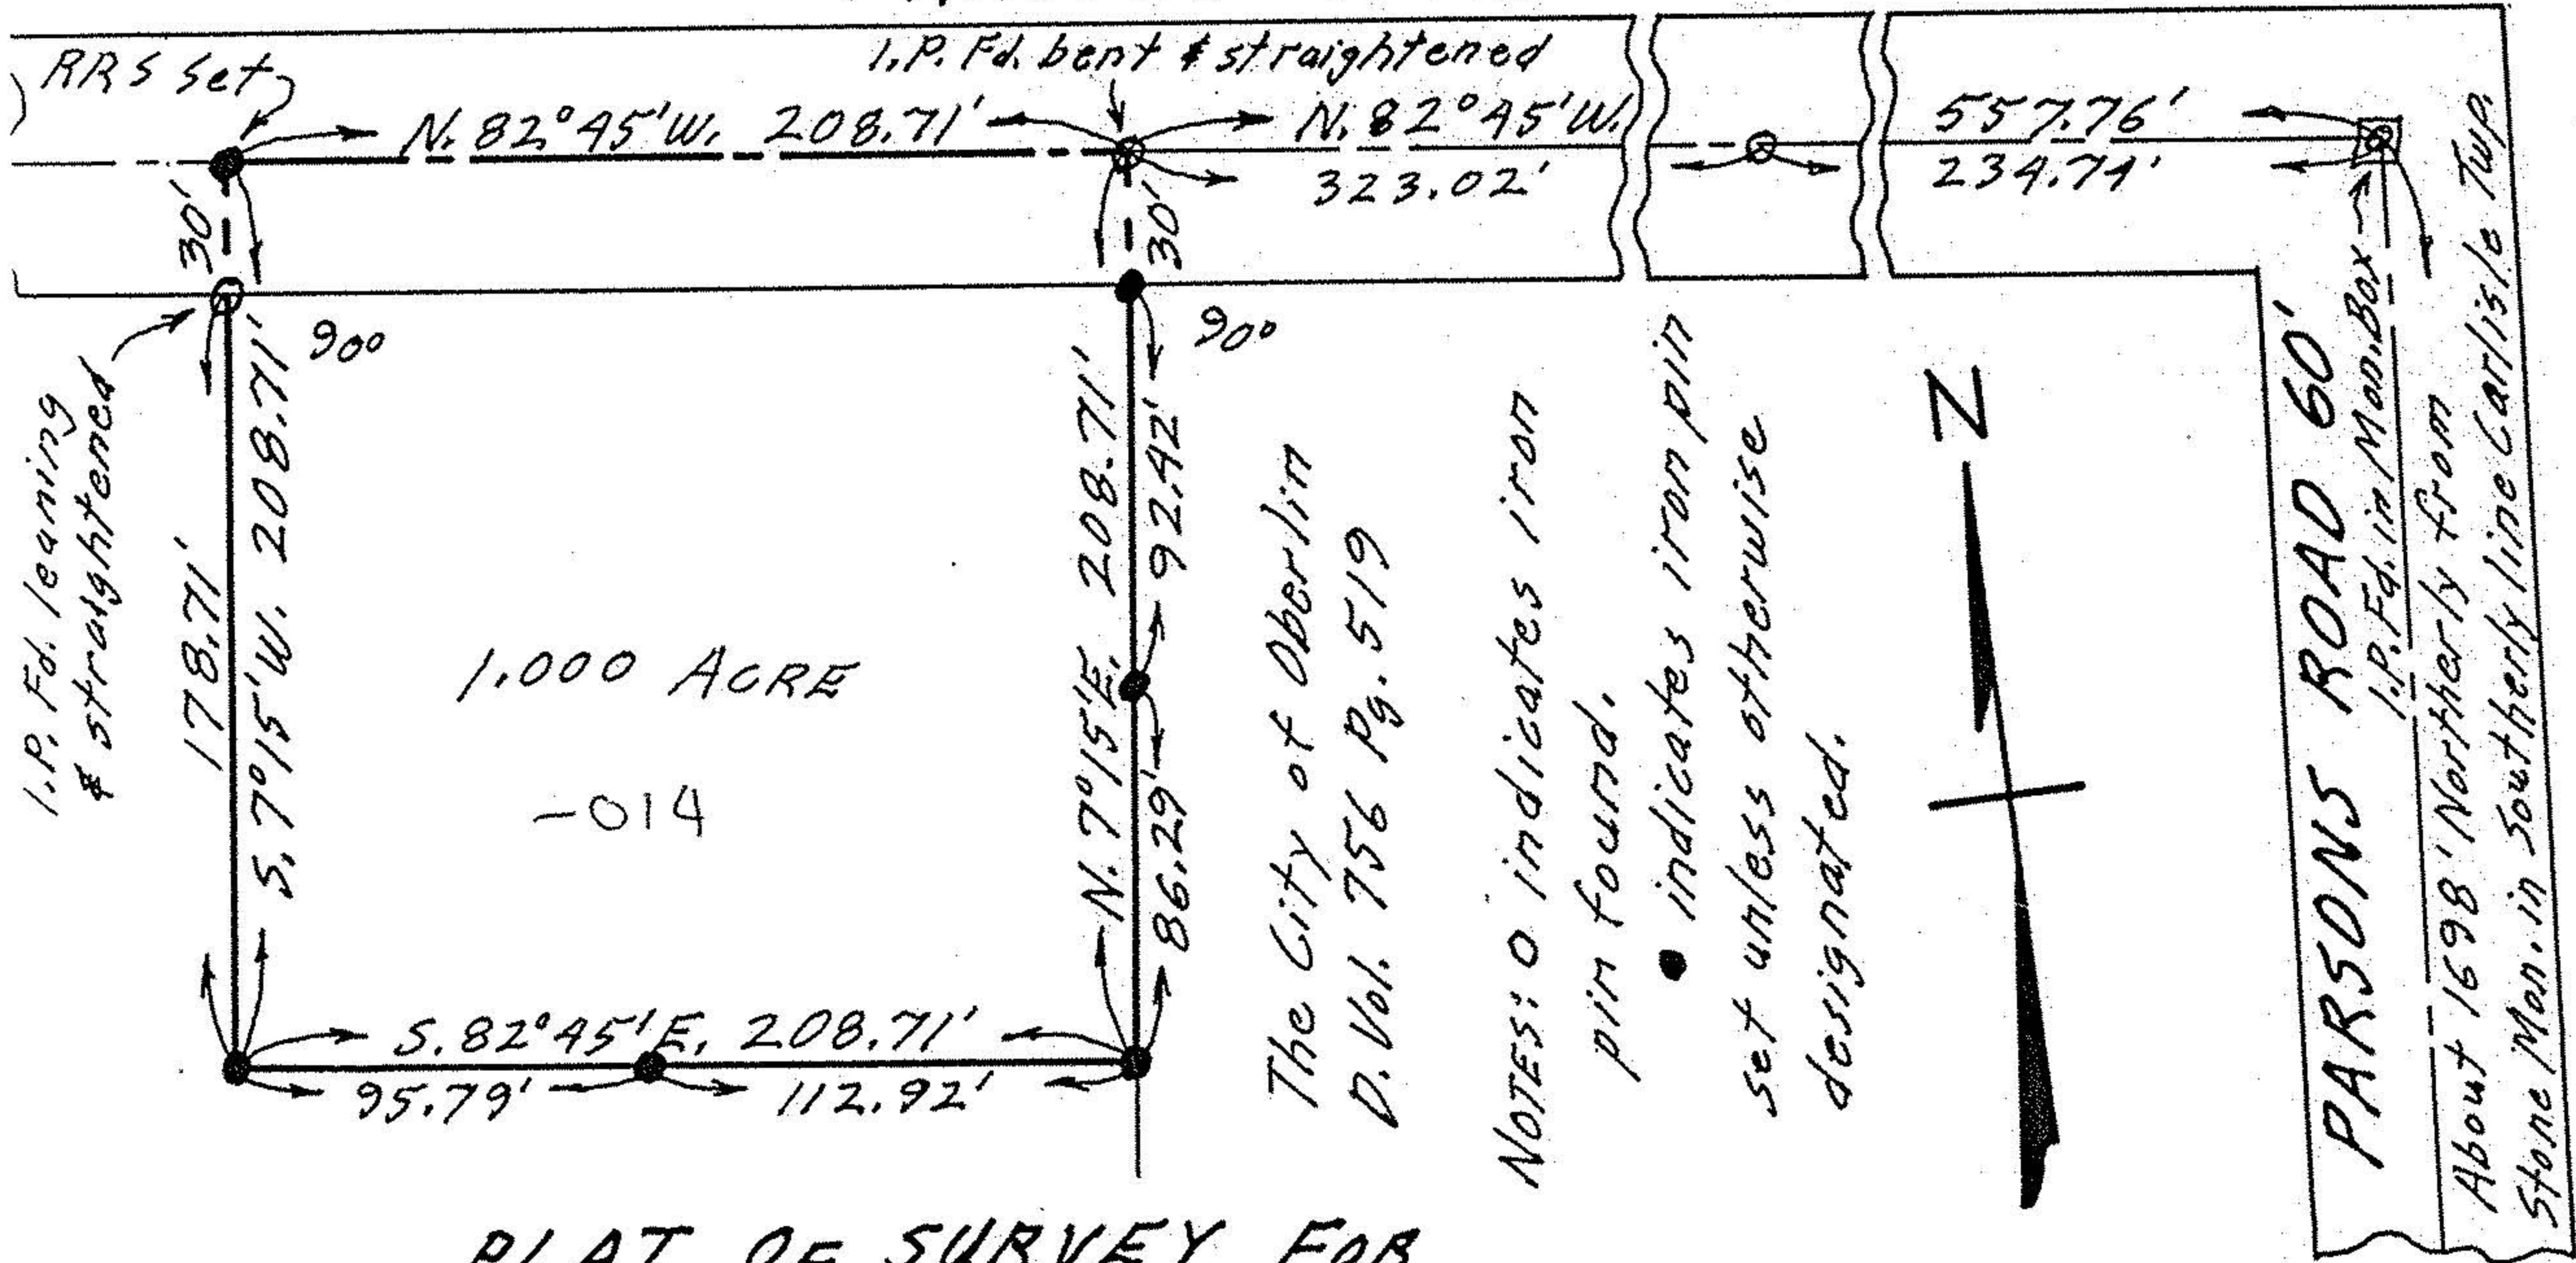 RRS Set
I.P. Fd. bent & straightened
N. 82°45'W. 208.71'
N. 82°45'W.
557.76'
323.02'
234.74'
30'
30'
90°
90°
I.P. Fd. leaning
& straightened
178.71'
S. 7°15'W. 208.71'
1.000 ACRE
-014
N. 7°15'E. 208.71'
92.42'
86.29'
S. 82°45'E. 208.71'
95.79'
112.92'
The City of Oberlin
D. Vol. 756 Pg. 519
NOTES: O indicates iron
pin found.
● indicates iron pin
set unless otherwise
designated.
N
PARSONS ROAD 60'
I.P. Fd. in Mon. Box
About 1698' Northerly from
Stone Mon. in Southerly line Carlisle Twp.
PLAT OF SURVEY FOR